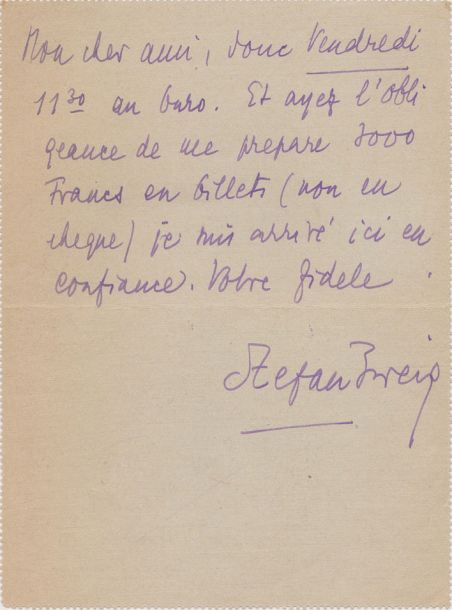 Mon cher ami, donc Vendredi
11 30 au buro. Et ayez l'obli
geance de me prepare 3000
Francs en billets (non en
cheque) je suis arrivé ici en
confiance. Votre fidele
Stefan Zweig